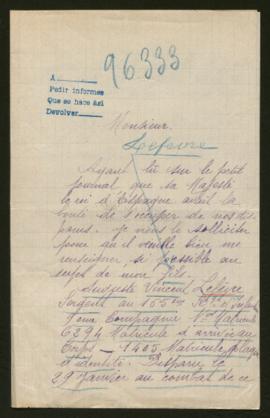 96333
A
Pedir informes
Que se hace así
Devolver
Monsieur
Lefevre
Ayant lu sur le petit
journal que sa Majesté
le roi d'Espagne avait la
bonté de s'occuper de nos
je viens le solliciter
pour qu'il veuille bien me
renseigner si possible au
sujet de mon fils
Auguste Vincent Lefevre
Sergent au 155e
9eme Compagnie Matricule
6294 Matricule
Corps 1405 Matricule
d'identité. Disparu le
29 Janvier au combat de ce